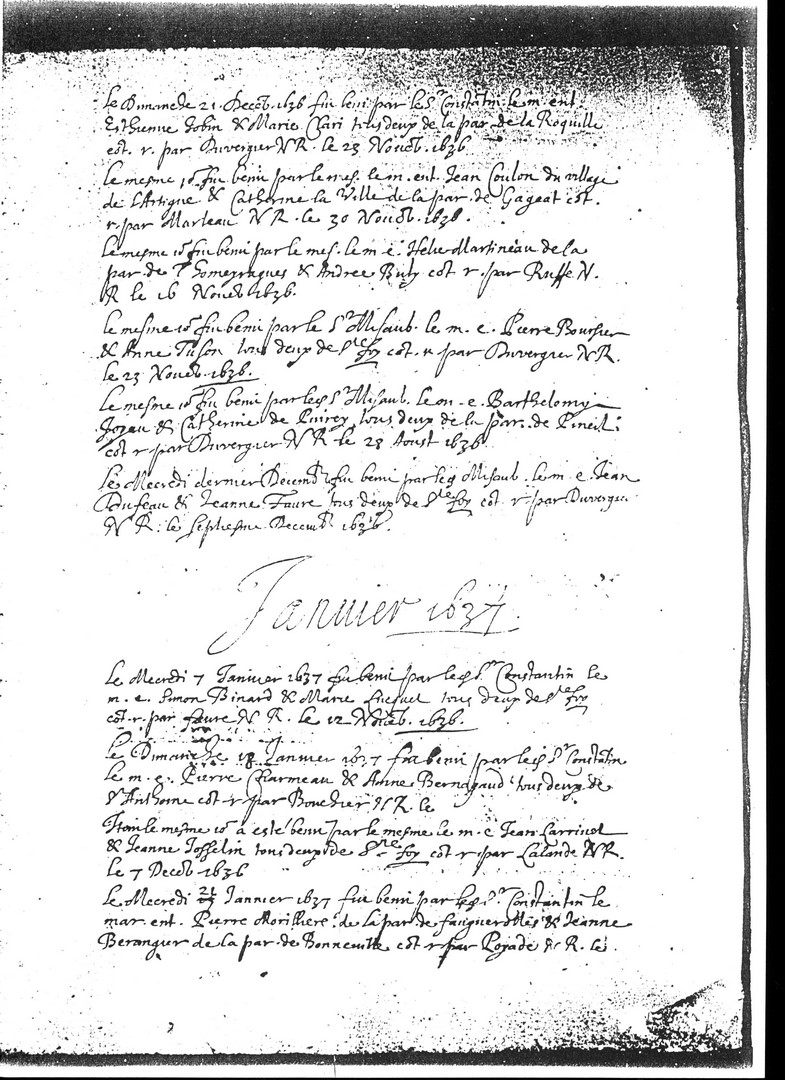 Le Dimanche 21 Deceb. 1636 fut beni par le Sr Constatin le m. ent.
Esthienne Jobin & Marie Chari tous deux de la par. de la Roquille
cot. r. par Duvergier N R. le 23 Noueb 1636
Le mesme jor fut beni par le mes. le m. ent. Jean Coulon du village
de l'Artigue & Catherine la Ville de la par. de Gageat cot.
r. par Marteau N R. le 30 Noueb. 1636.
Le mesme jor fut beni par le mes. le m e. Helie Martineau de la
par. de & Andree cot r. par Ruffe N.
R le 16 Noueb 1636.
Le mesme jor fut beni par le Sr Misaub. le m. e. Pierre Boursier
& Anne Tuson tous deux de Ste foy cot. r. par Duvergier N R.
le 23 Noueb. 1636.
Le mesme jor fut beni par led. Sr Misaub. le m. e. Barthelomy
& Catherine de tous deux de la par. de Pineil:
cot r par Duvergier N R le 23 Aoust 1636
Le Mecredi dernier Decemb. fut beni par led Misaub. le m. e. Jean
Dufeau & Jeanne Faure tous deux de Ste foy cot. r. par Duvergier
N R. le septiesme Decemb. 1636.
Januier 1637.
Le Mecredi 7 Januier 1637 fut beni par led Sr. Constantin le
m. e. Simon Binard & Marie tous deux de Ste foy
cot. r. par faure N R. le 12 Noueb. 1636.
Le Dimanche 18 Januier 1637 fut beni par led Sr Constatin
le m. e. Pierre Charmeau & Anne Bernagaud tous deux de
St Anthoine cot. r par Boucher N R. le
Item le mesme jor a esté beni par le mesme le m. e Jean
& Jeanne Josselin tous deux de Ste foy cot r par Lalande N R.
le 7 Deceb 1636
Le Mecredi 21 Januier 1637 fut beni par led Sr. Constantin le
mar. ent. Pierre Morilliere de la par. de & Jeanne
Beranguer de la par. de Bonneville cot r par Poyade N R. le